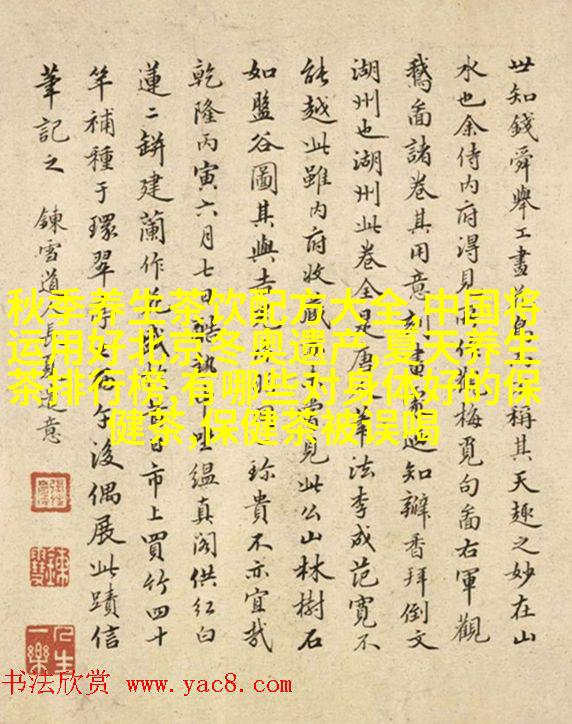 世知錢舜舉工畫稱其天趣之妙在山
水也余侍内府得見梅覓句啚右軍觀
鵞啚諸卷其用意刻畫知辦香拜倒文
湖州也湖州此卷全是唐筆法李成范寬不
能越此雖内府收藏見此公山林樹石
如盤谷圖其與珍貴不亦宜哉
乾隆丙寅六月七日酷熱坐緼真阁供红白
蓮二缾建蘭作日市上買竹四十
竿補種于環翠亭之午後偶展此蹟信
筆記之 鍊雪道人長夏是意
秋季养生茶饮配方大全,中国将
运用好北京冬奥遗产,夏天养生
茶排行榜,有哪些对身体好的保
健茶,保健茶被误喝
人生一樂
书法欣赏 www.yac8.com